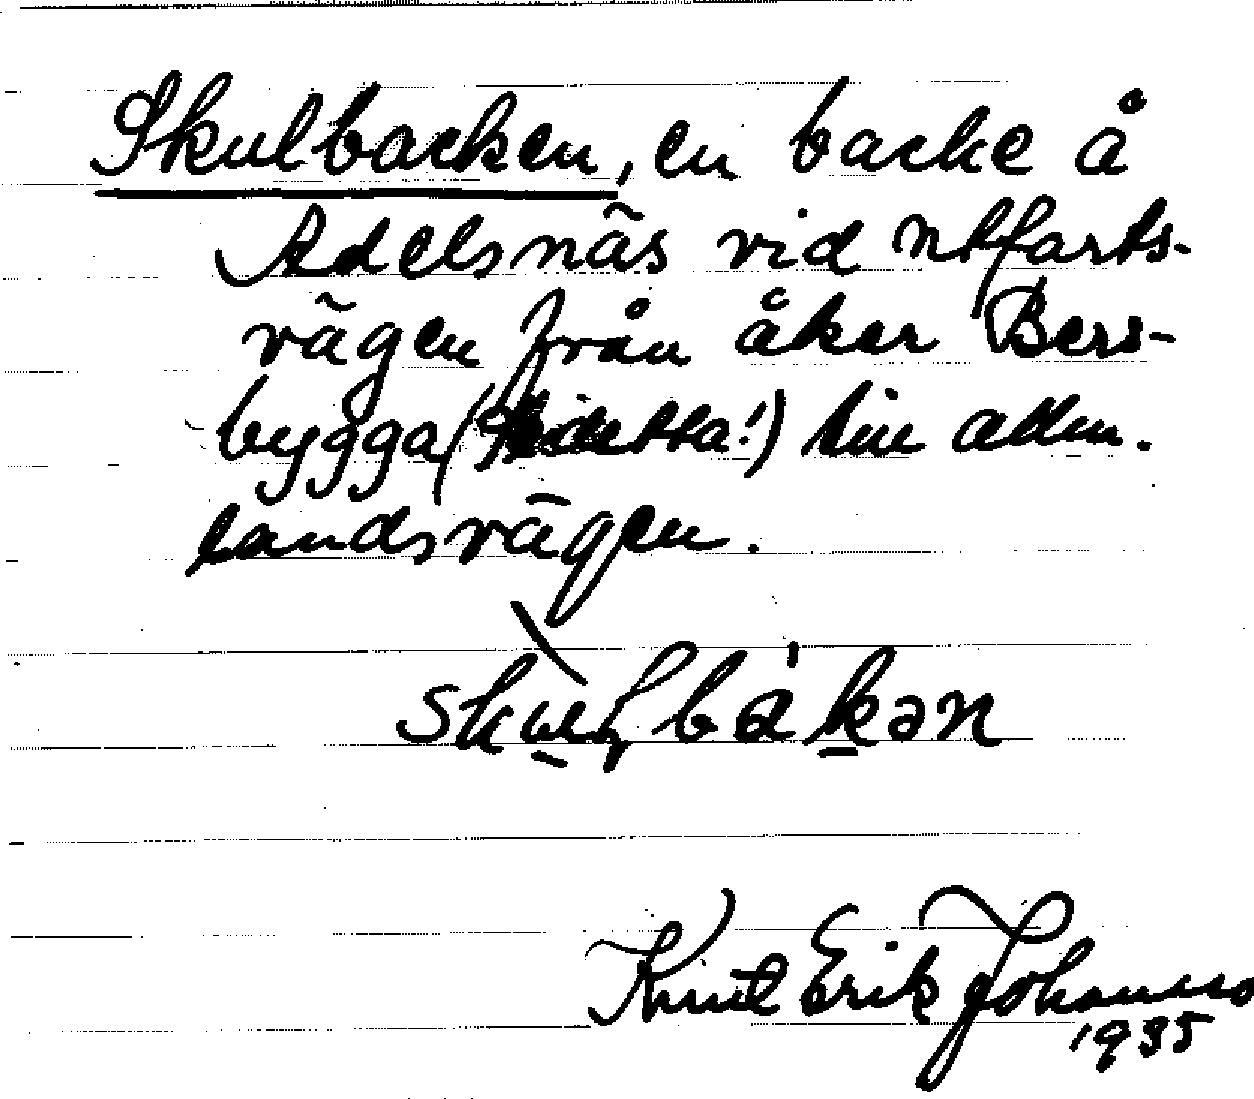 Skulbacken, en backe å
Adelsnäs vid utfarts-
vägen från åker Bers-
bygga ( detta!) till allm.
landsvägen.
bàkən
Knut Erik Johansso
1935